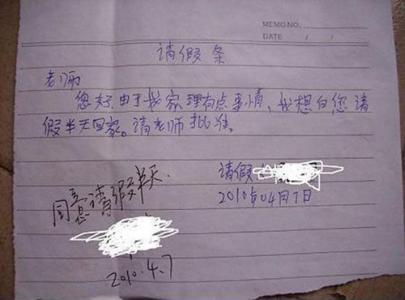 MEMO NO.
DATE / /
请假条
老师
您好,由于我家理有点事情,我想向您请
假半天回家。请老师批准。
请假
2010年04月7日
同意请假半天.
2010.4.7